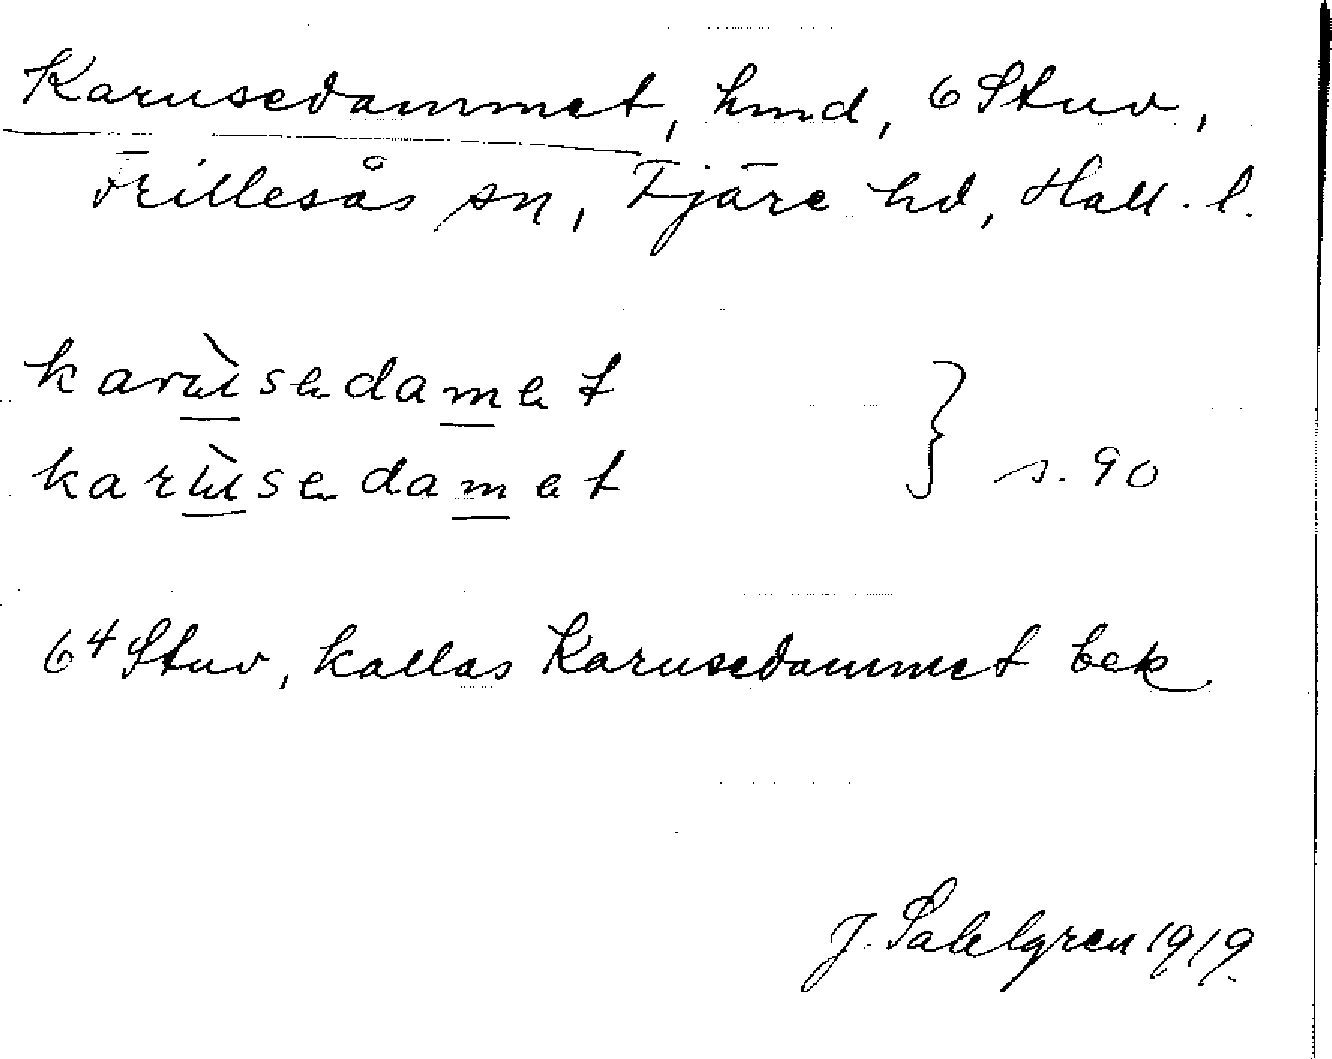 Karusedammet, hmd, 6 Stuv,
Frillesås sn, Fjäre hd, Hall. l.
karùsedamet
karùsedamet } s. 90
6⁴ Stuv, kallas Karusedammet bek
J. Sahlgren 1919.